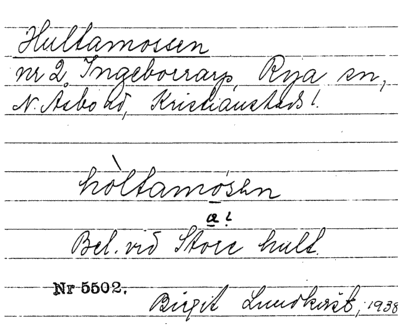 Hultamossen
nr 2 Ingeborrarp, Rya sn,
N. Åsbo hd, Kristianstads l.
hòltamósən
a!
Bel. vid Store hult.
Nr 5502.
Birgit Lundkvist, 1938